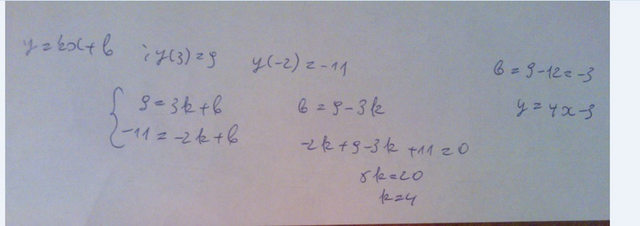 y = kx + b ; y(3) = 9 y(-2) = -11
{ 9 = 3k + b
-11 = -2k + b
b = 9 - 3k
-2k + 9 - 3k + 11 = 0
5k = 20
k = 4
b = 9 - 12 = -3
y = 4x - 3